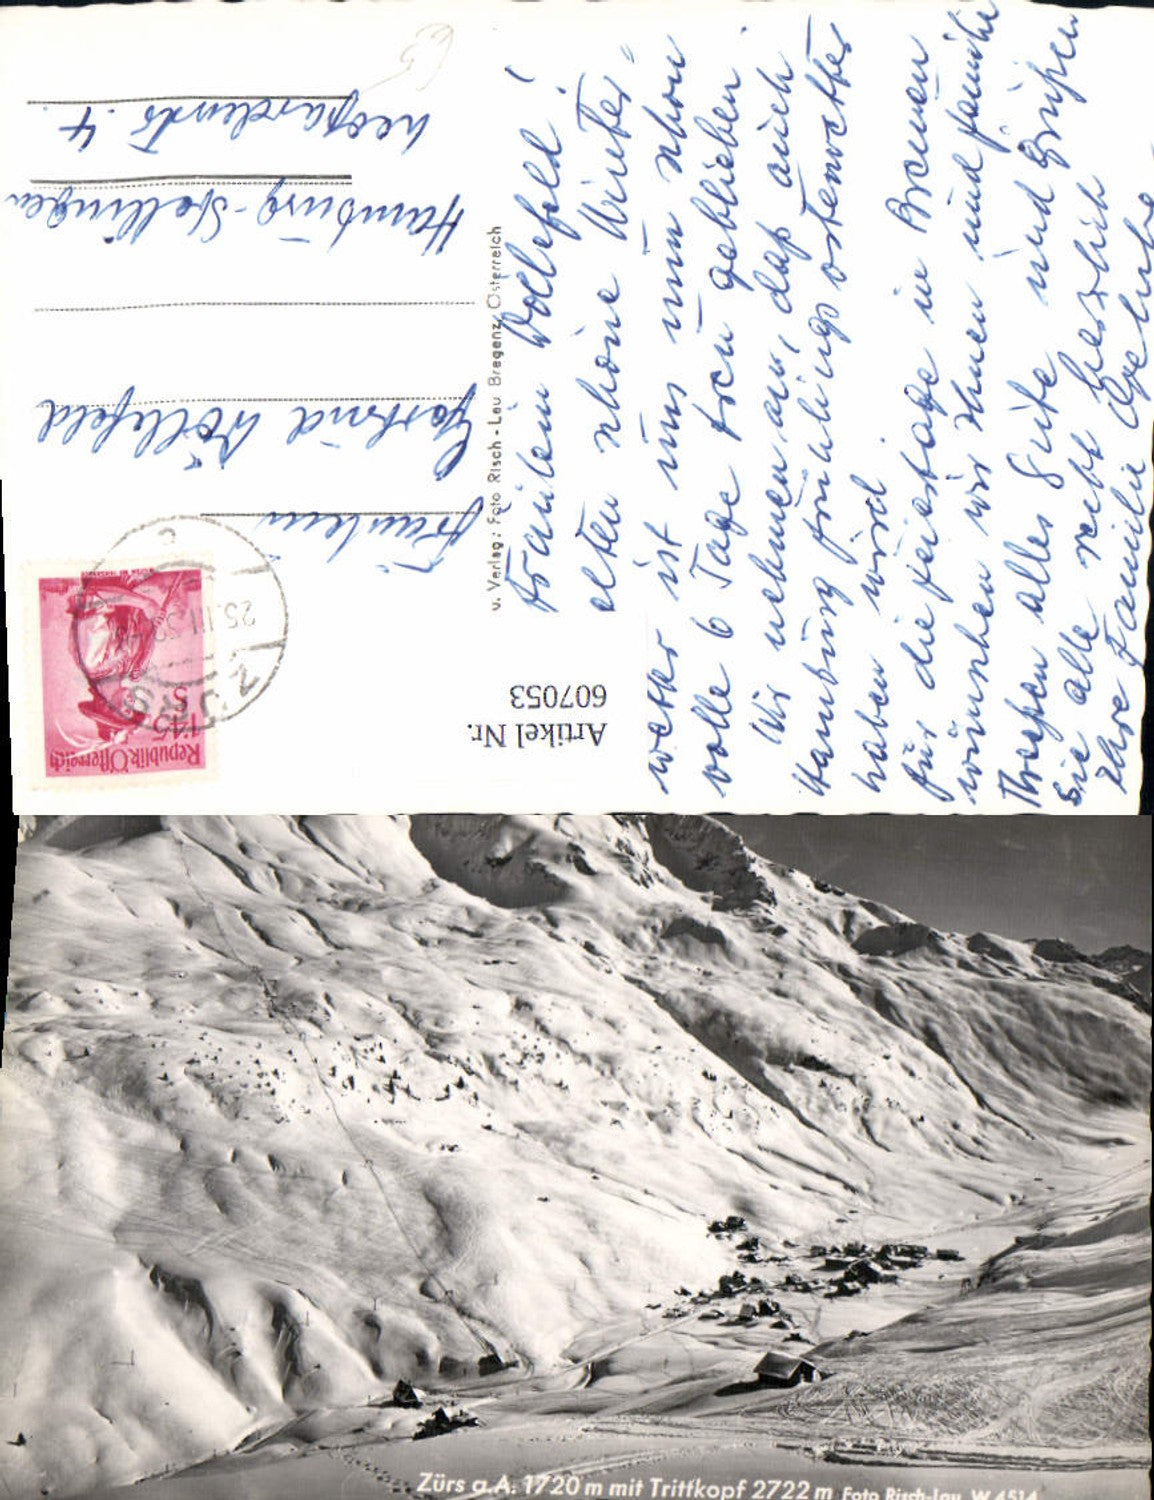 Fräulein Wöllefeld!
schöne Winter-
wetter ist uns nun schon
volle 6 Tage treu geblieben.
Wir nehmen an, daß auch
Hamburg Frühlings osterwetter
haben wird.
Für die Feiertage in Bremen
wünschen wir Ihnen und Familie
alles Gute und Grüßen
Sie alle recht herzlich
Ihre Familie
Fräulein
Wöllefeld
Hamburg-Stellingen
4.
u. Verlag: Foto Risch-Lau Bregenz, Österreich
Republik Österreich
1.45
S
ZÜRS
25.III.59
Artikel Nr.
607053
Zürs a.A. 1720 m mit Trittkopf 2722 m Foto Risch-Lau W 4514